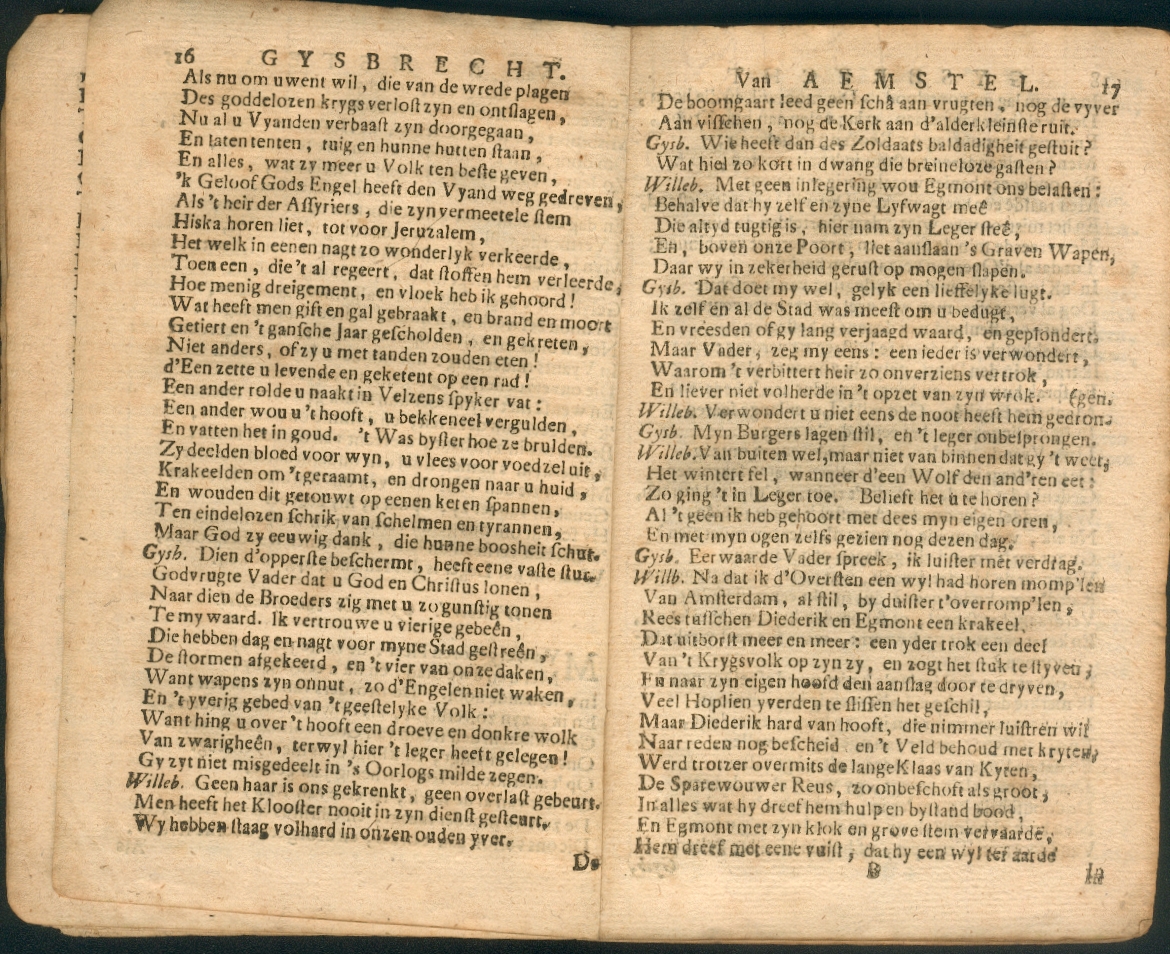 16 GYSBRECHT.
Als nu om uwent wil, die van de wrede plagen
Des goddelozen krygs verlost zyn en ontslagen,
Nu al u Vyanden verbaast zyn doorgegaan,
En laten tenten, tuig en hunne hutten staan,
En alles, wat zy meer u Volk ten beste geven,
'k Geloof Gods Engel heeft den Vyand weg gedreven,
Als 't heir der Assyriers, die zyn vermeetele stem
Hiska horen liet, tot voor Jeruzalem,
Het welk in eenen nagt zo wonderlyk verkeerde,
Toen een, die 't al regeert, dat stoffen hem verleerde,
Hoe menig dreigement, en vloek heb ik gehoord!
Wat heeft men gift en gal gebraakt, en brand en moort
Getiert en 't gansche Jaar gescholden, en gekreten,
Niet anders, of zy u met tanden zouden eten!
d'Een zette u levende en geketent op een rad!
Een ander rolde u naakt in Velzens spyker vat:
Een ander wou u 't hooft, u bekkeneel vergulden,
En vatten het in goud. 't Was byster hoe ze brulden.
Zy deelden bloed voor wyn, u vlees voor voedzel uit,
Krakeelden om 't geraamt, en drongen naar u huid,
En wouden dit getouwt op eenen keten spannen,
Ten eindelozen schrik van schelmen en tyrannen,
Maar God zy eeuwig dank, die hunne boosheit schut.
Gysb. Dien d'opperste beschermt, heeft eene vaste stut.
Godvrugte Vader dat u God en Christus lonen,
Naar dien de Broeders zig met u zo gunstig tonen
Te my waard. Ik vertrouwe u vierige gebeên,
Die hebben dag en nagt voor myne Stad gestreên,
De stormen afgekeerd, en 't vier van onze daken,
Want wapens zyn onnut, zo d'Engelen niet waken,
En 't yverig gebed van 't geestelyke Volk:
Want hing u over 't hooft een droeve en donkre wolk
Van zwarigheên, terwyl hier 't leger heeft gelegen!
Gy zyt niet misgedeelt in 's Oorlogs milde zegen.
Willeb. Geen haar is ons gekrenkt, geen overlast gebeurt.
Men heeft het Klooster nooit in zyn dienst gesteurt.
Wy hebben staag volhard in onzen ouden yver.
De
Van AEMSTEL. 17
De boomgaart leed geen schâ aan vrugten, nog de vyver
Aan visschen, nog de Kerk aan d'alderkleinste ruit.
Gysb. Wie heeft dan des Zoldaats baldadigheit gestuit?
Wat hiel zo kort in dwang die breineloze gasten?
Willeb. Met geen inlegering wou Egmont ons belasten:
Behalve dat hy zelf en zyne Lyfwagt meê
Die altyd tugtig is, hier nam zyn Leger steê,
En, boven onze Poort, liet aanslaan 's Graven Wapen,
Daar wy in zekerheid gerust op mogen slapen.
Gysb. Dat doet my wel, gelyk een lieffelyke lugt.
Ik zelf en al de Stad was meest om u bedugt,
En vreesden of gy lang verjaagd waard, en geplondert,
Maar Vader, zeg my eens: een ieder is verwondert,
Waarom 't verbittert heir zo onverziens vertrok,
En liever niet volherde in 't opzet van zyn wrok. (gen.
Willeb. Verwondert u niet eens de noot heeft hem gedron-
Gysb. Myn Burgers lagen stil, en 't leger onbesprongen.
Willeb. Van buiten wel, maar niet van binnen dat gy 't weet,
Het wintert fel, wanneer d'een Wolf den and'ren eet:
Zo ging 't in Leger toe. Belieft het û te horen?
Al 't geen ik heb gehoort met dees myn eigen oren,
En met myn ogen zelfs gezien nog dezen dag.
Gysb. Eerwaarde Vader spreek, ik luister met verdrag.
Willb. Na dat ik d'Oversten een wyl had horen momp'len
Van Amsterdam, al stil, by duister t'overromp'len,
Rees tusschen Diederik en Egmont een krakeel,
Dat uitborst meer en meer: een yder trok een deel
Van 't Krygsvolk op zyn zy, en zogt het stuk te styven,
En naar zyn eigen hoofd den aanslag door te dryven,
Veel Hoplien yverden te slissen het geschil,
Maar Diederik hard van hooft, die nimmer luistren wil
Naar reden nog bescheid en 't Veld behoud met kryten,
Werd trotzer overmits de lange Klaas van Kyten,
De Sparewouwer Reus, zo onbeschoft als groot,
In alles wat hy dreef hem hulp en bystand bood,
En Egmont met zyn klok en grove stem vervaarde,
Hem dreef met eene vuist, dat hy een wyl ter aarde
B In